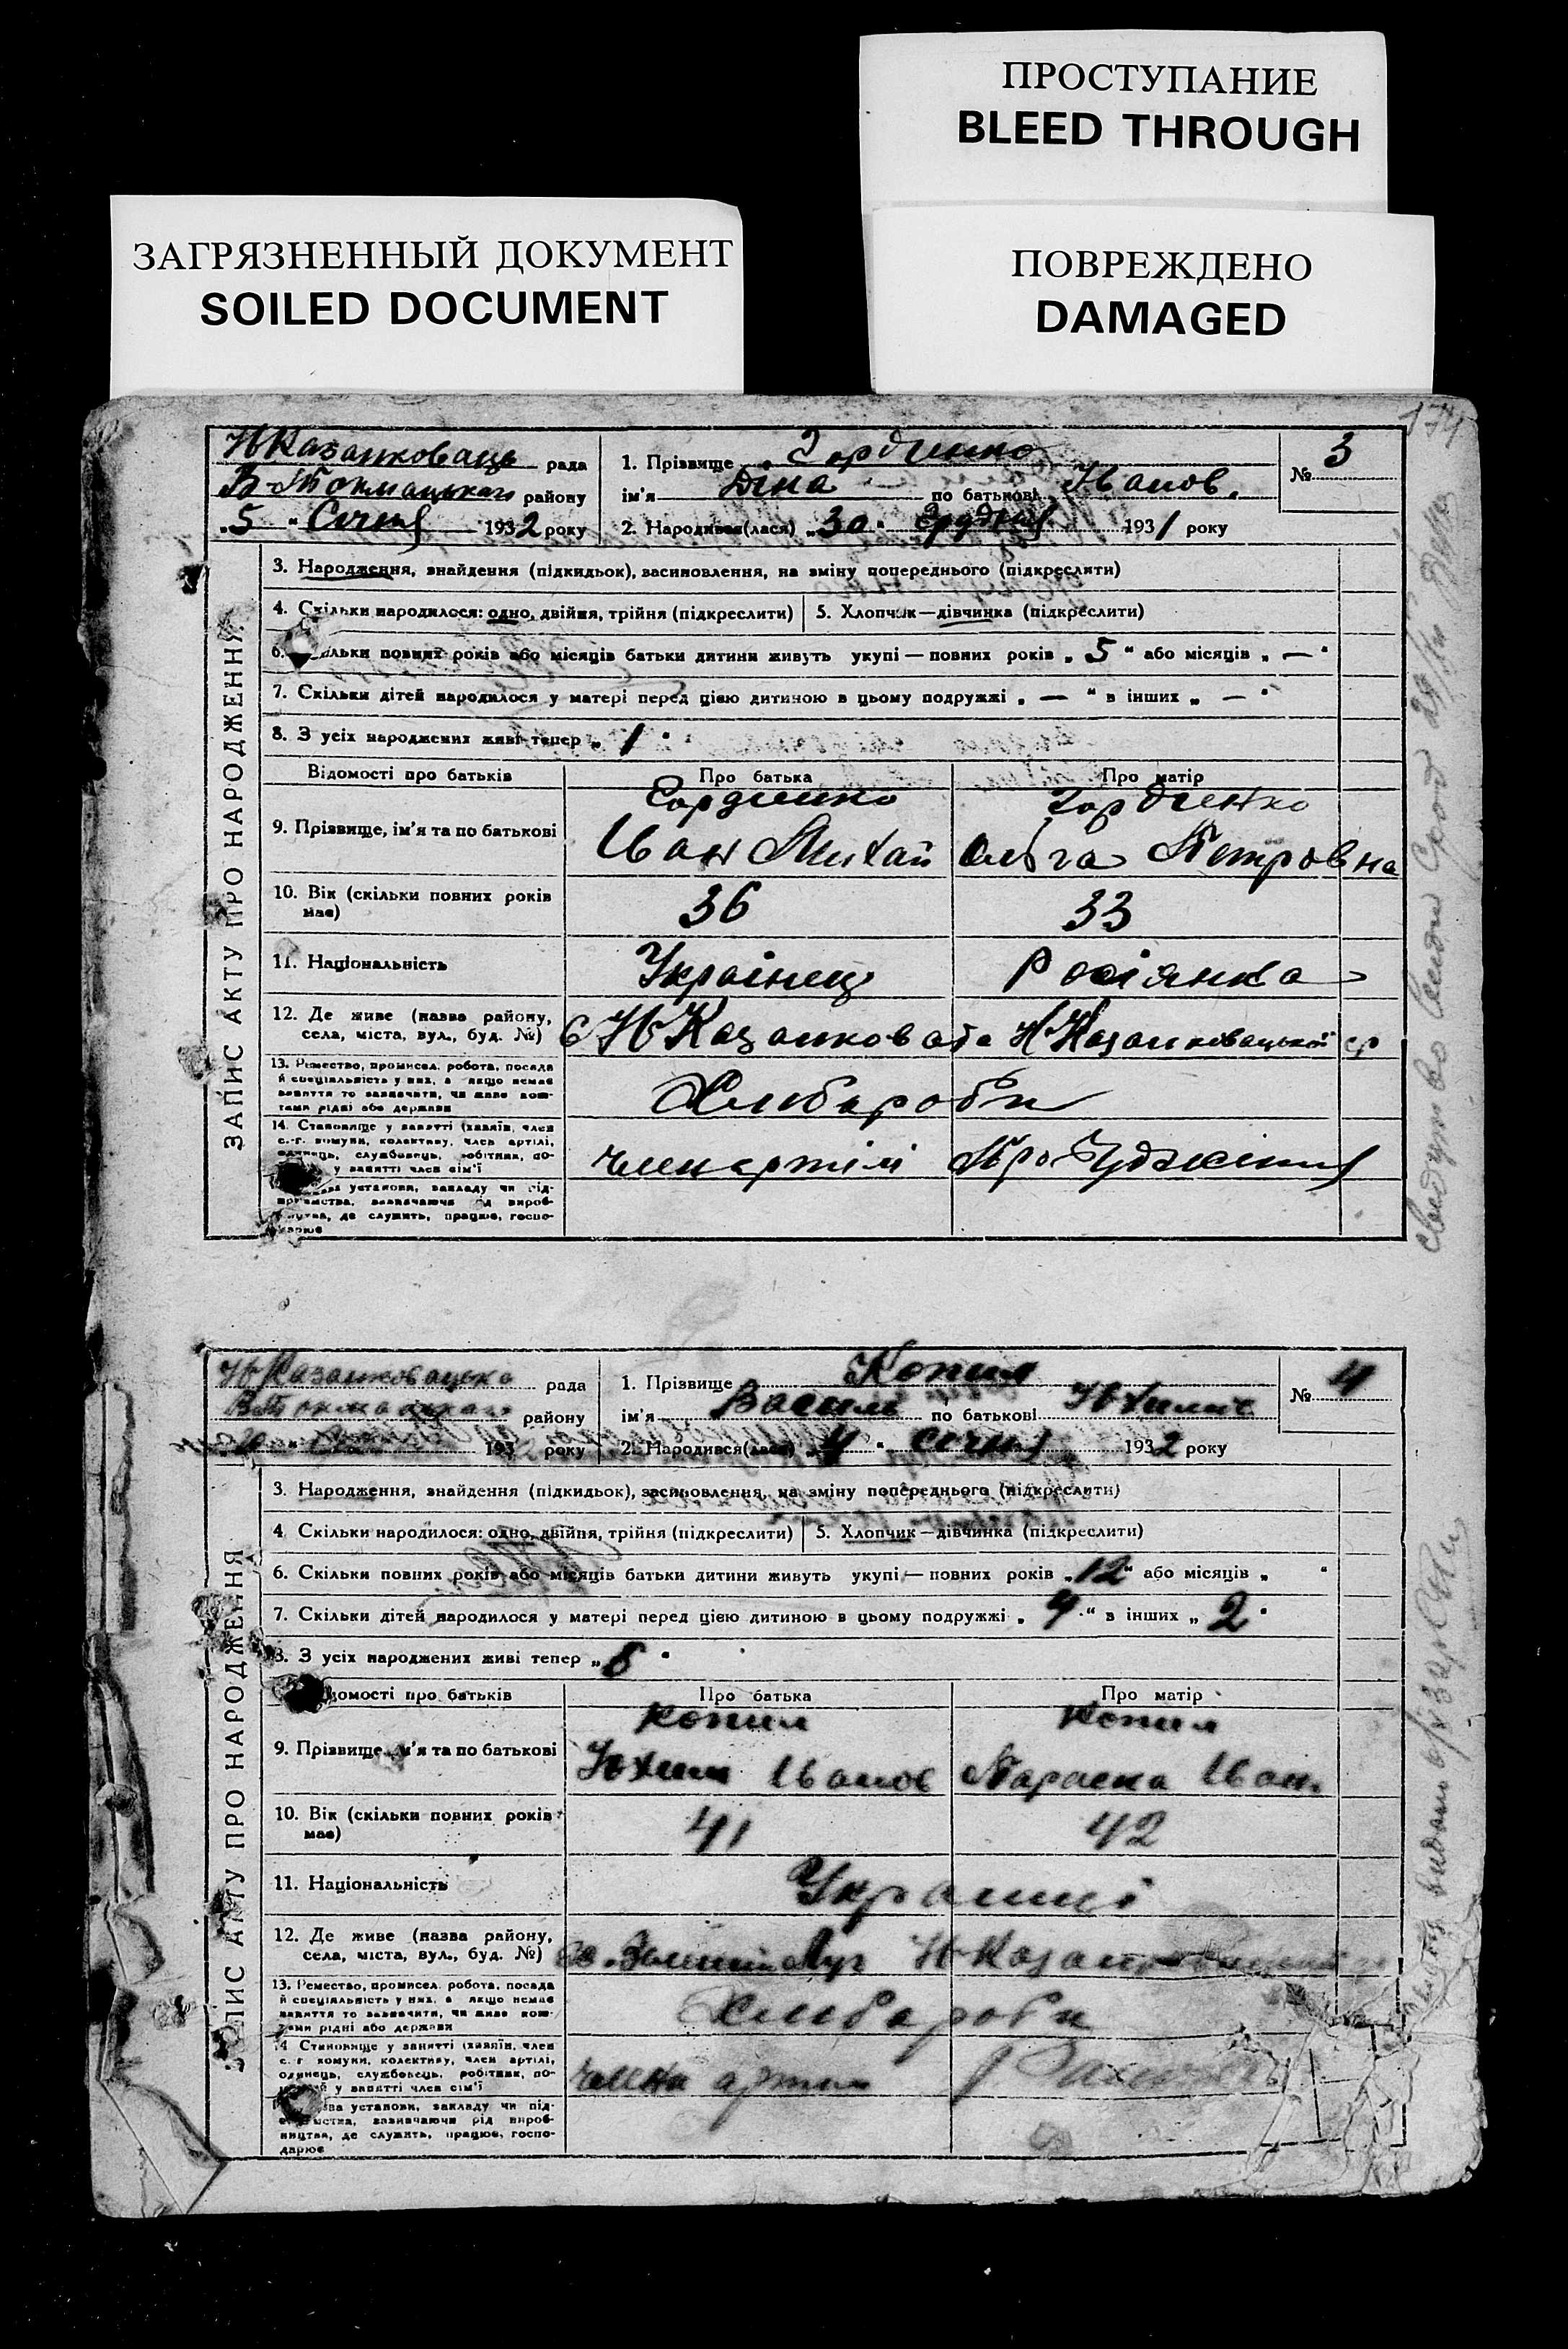 ПРОСТУПАНИЕ
BLEED THROUGH
ЗАГРЯЗНЕННЫЙ ДОКУМЕНТ
SOILED DOCUMENT
ПОВРЕЖДЕНО
DAMAGED
174
ЗАПИС АКТУ ПРО НАРОДЖЕННЯ
рада
В-Токмацького району
„5“ Січня 1932 року
1. Прізвище Гордиенко
ім'я Діна по батькові Иванов.
2. Народився(лася) „30“ Грудня 1931 року
№ 3
3. Народження, знайдення (підкидьок), васиновлення, на зміну попереднього (підкреслити)
4. Скільки народилося: одно, двійня, трійня (підкреслити)
5. Хлопчик—дівчинка (підкреслити)
6. Скільки повних років або місяців батьки дитини живуть укупі — повних років „5“ або місяців „—“
7. Скільки дітей народилося у матері перед цією дитиною в цьому подружжі „—“ в інших „—“
8. З усіх народжених живі тепер „1“
Відомості про батьків
Про батька
Про матір
9. Прізвище, ім'я та по батькові
Гордиенко
Иван Михай
Гордиенко
Ольга Петровна
10. Вік (скільки повних років має)
36
33
11. Національність
Українец
Росіянка
12. Де живе (назва району,
села, міста, вул., буд. №)
с Н Казанковата Н Казанковацької ср
13. Ремество, промисел, робота, посада
й спеціальність у них, а якщо немає
заняття то зазначити, чи живе кош-
тами рідні або держави
Хлибороби
14. Становище у занятті (хазяїн, член
с.-г. комуни, колективу, член артілі,
одинець, службовець, робітник, по-
у занятті член сім'ї
член артілі
установи, закладу чи під-
приємства, зазначаючи рід вироб-
ництва, де служить, працює, госпо-
дарює
ЗАПИС АКТУ ПРО НАРОДЖЕННЯ
Н Казанковацька рада
В Токмацького району
193 року
1. Прізвище Копил
ім'я Василь по батькові Юхимів
2. Народився(лася) „4“ Січня 1932 року
№ 4
3. Народження, знайдення (підкидьок), васиновлення, на зміну попереднього (підкреслити)
4 Скільки народилося: одно, двійня, трійня (підкреслити)
5. Хлопчик—дівчинка (підкреслити)
6. Скільки повних років або місяців батьки дитини живуть укупі — повних років „12“ або місяців „ “
7. Скільки дітей народилося у матері перед цією дитиною в цьому подружжі „4“ в інших „2“
8. З усіх народжених живі тепер „ “
Відомості про батьків
Про батька
Про матір
9. Прізвище, ім'я та по батькові
Копил
Юхим Иванов
Копил
Параска Иван.
10. Вік (скільки повних років має)
41
42
11. Національність
Українці
12. Де живе (назва району,
села, міста, вул., буд. №)
Луг
13. Ремество, промисел, робота, посада
й спеціальність у них, а якщо немає
заняття то зазначити, чи живе кош-
тами рідні або держави
Хлибороби
14 Становище у занятті (хазяїн, член
с.-г комуни, колективу, член артілі,
одинець, службовець, робітник, по-
у занятті член сім'ї
члени артили
установи, закладу чи під-
приємства, зазначаючи рід вироб-
ництва, де служить, працює, госпо-
дарює